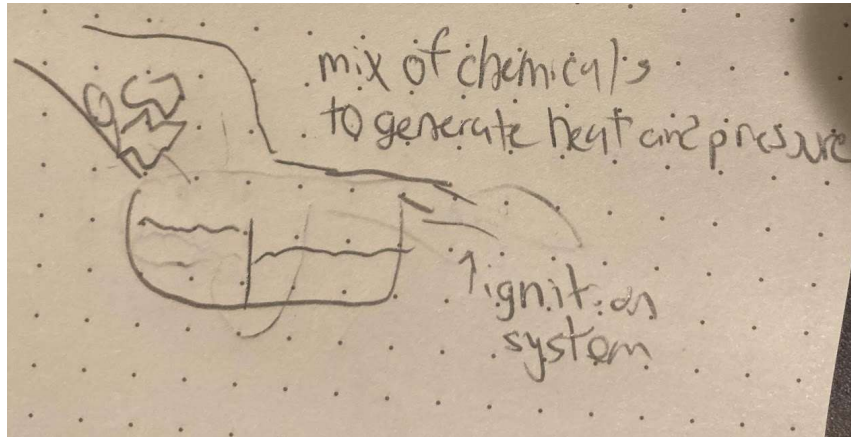 mix of chemicals
to generate heat and pressure
ignition
system